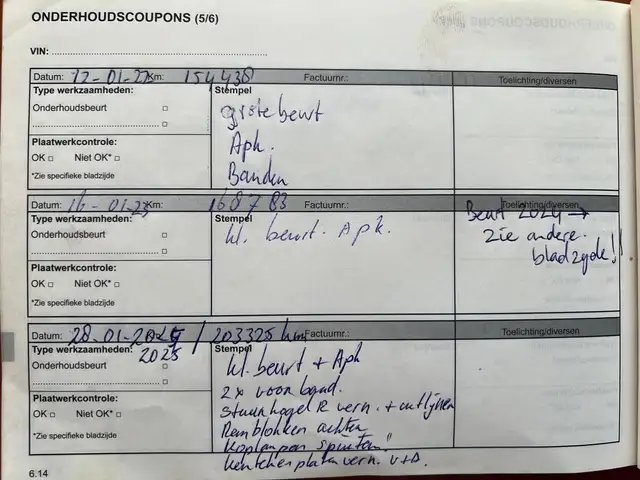 ONDERHOUDSCOUPONS (5/6)
VIN:
Datum: 12-01-22 Km: 154438 Factuurnr.: Toelichting/diversen
Type werkzaamheden: Stempel
Onderhoudsbeurt
grote beurt
Apk.
Plaatwerkcontrole:
OK Niet OK*
Banden
*Zie specifieke bladzijde
Datum: 16-01-23 Km: 168783 Factuurnr.: Toelichting/diversen
Type werkzaamheden: Stempel
Beurt 2024 →
Onderhoudsbeurt
kl. beurt. Apk.
zie andere.
bladzyde!!
Plaatwerkcontrole:
OK Niet OK*
*Zie specifieke bladzijde
Datum: 28-01-2025 / 203325 km Factuurnr.: Toelichting/diversen
Type werkzaamheden: 2025 Stempel
Onderhoudsbeurt
kl. beurt + Apk
2x voor band.
Plaatwerkcontrole:
OK Niet OK*
stuurkogel R vern. + uitlijnen
Remblokken achter
*Zie specifieke bladzijde
Koplampen spuiten!!
kentekenplaten vern. V+A.
6.14